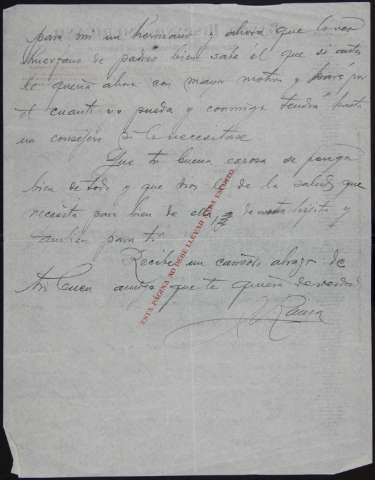 para mi un hermano y ahora que lo veo
huerfano de padre bien sabe el que si antes
le queria ahora con mayor motivo y haré por
el cuanto yo pueda y conmigo tendrá hasta
un consejero si lo necesitase
Que tu buena esposa se ponga
bien de todo y que Dios le de la salud que
necesita para bien de ella de
y
tambien para ti
Recibe un cariñoso abrazo de
tu buen amigo que te quiere de verdad
ESTA PÁGINA NO DEBE LLEVAR NADA ESCRITO